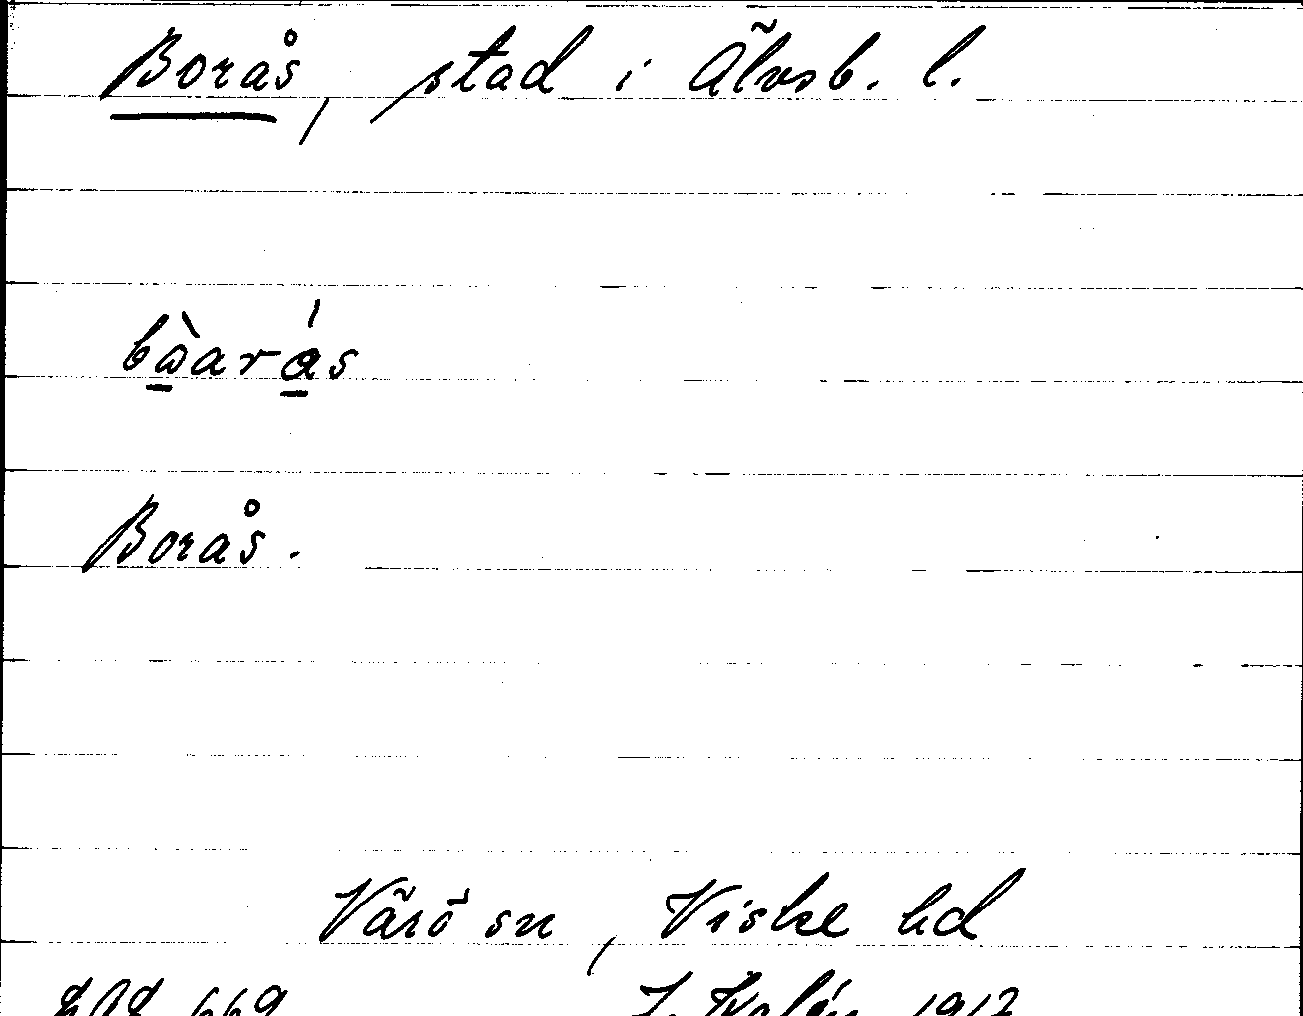 Borås, stad i Älvsb. l.
bàarás
Borås.
Värö sn, Viske hd
669
J. Kalén 1912